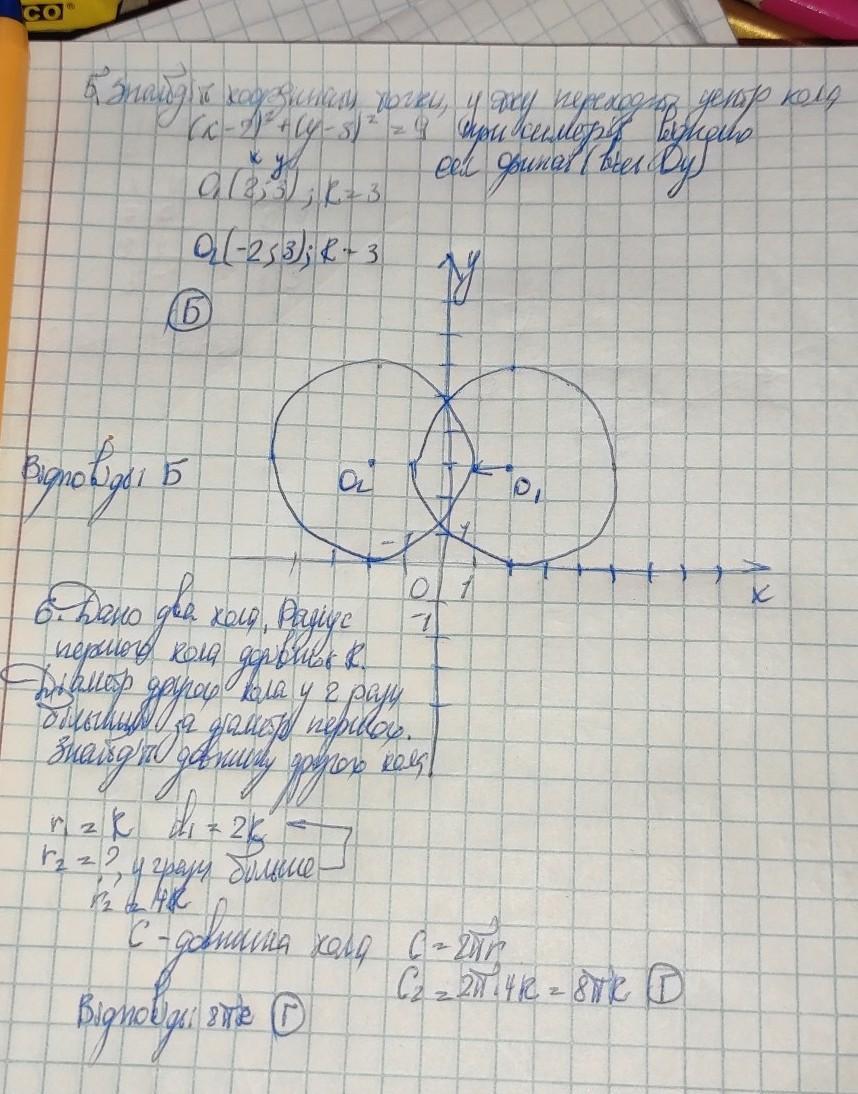 CO®
5. Знайдіть координати точки, у яку переходить центр кола
(x-2)²+(y-3)² = 9 при симетрії відносно
x y осі ординат (вісі Oy)
O₁(2;3); R=3
O₂(-2;3); R-3
Б
y
Відповідь: Б
O₂ O₁
1
0 1 x
-1
6. Дано два кола. Радіус
першого кола дорівнює R.
Діаметр другого кола у 2 рази
більший за діаметр першого.
Знайдіть довжину другого кола
r₁ = R d₁ = 2R
r₂ = ?, у 2 рази більше
r₂ = 4R
C - довжина кола C = 2πr
C₂ = 2π·4R = 8πR Г
Відповідь: 8πR Г